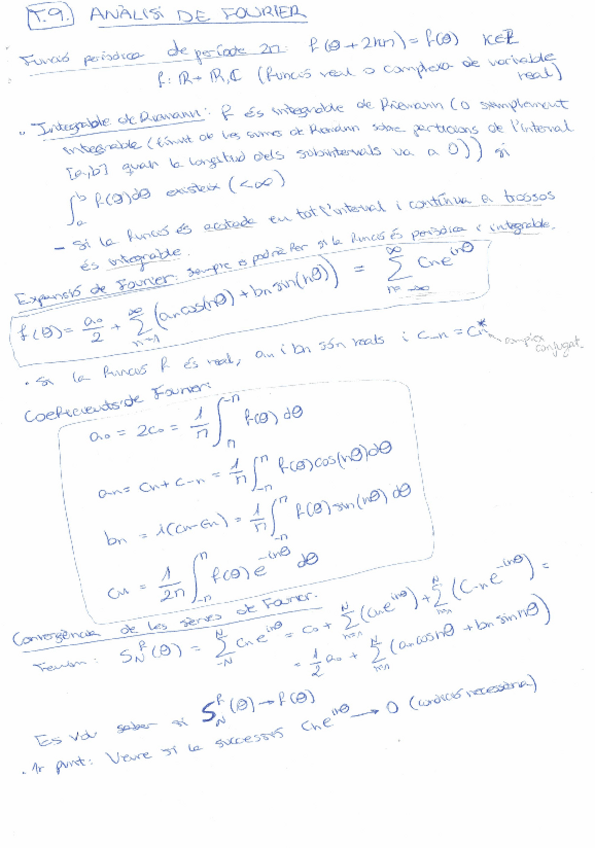 T.9. ANÀLISI DE FOURIER
Funció periòdica de període 2π: f(θ + 2kπ) = f(θ) k∈ℤ
f: ℝ→ℝ,ℂ (funció real o complexa de variable real)
• Integrable de Riemann: f és integrable de Riemann (o simplement
integrable (límit de les sumes de Riemann sobre particions de l'interval
[a,b] quan la longitud dels subintervals va a 0)) si
∫_a^b f(θ)dθ existeix (<∞)
– Si la funció és acotada en tot l'interval i contínua a trossos
és integrable.
Expansió de Fourier: Sempre es podrà fer si la funció és periòdica i integrable.
f(θ) = a₀/2 + ∑_{n=1}^∞ (an cos(nθ) + bn sin(nθ)) = ∑_{n=-∞}^∞ Cn e^{inθ}
• Si la funció f és real, an i bn són reals i C-n = Cn* complex conjugat
Coeficients de Fourier:
a₀ = 2c₀ = 1/π ∫_π^{-π} f(θ) dθ
an = Cn + C-n = 1/π ∫_{-π}^π f(θ)cos(nθ)dθ
bn = i(Cn - C-n) = 1/π ∫_{-π}^π f(θ) sin(nθ) dθ
Cn = 1/2π ∫_{-π}^π f(θ) e^{-inθ} dθ
Convergència de les sèries de Fourier:
S_N^f(θ) = ∑_{-N}^N Cn e^{inθ} = c₀ + ∑_{n=1}^N (Cn e^{inθ}) + ∑_{n=1}^N (C-n e^{-inθ}) =
= 1/2 a₀ + ∑_{n=1}^N (an cos nθ + bn sin nθ)
Es vol saber si S_N^f(θ) → f(θ)
• 1r punt: Veure si la successió Cn e^{inθ} → 0 (condició necessària)